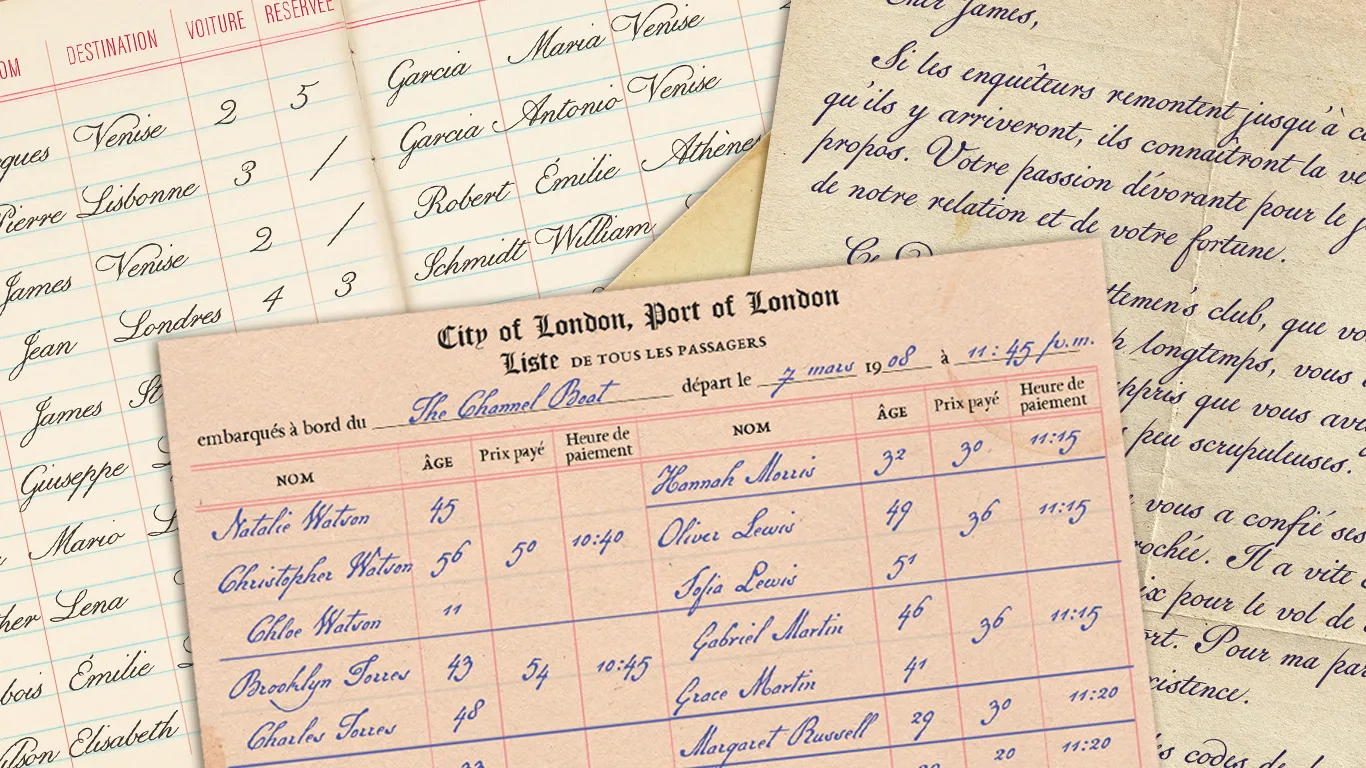 DESTINATION VOITURE RÉSERVÉE
Venise 2 5
Pierre Lisbonne 3 /
James Venise 2 /
Jean Londres 4 3
James
Giuseppe
Mario
Lena
Émilie
Elisabeth
Garcia Maria Venise
Garcia Antonio Venise
Robert Émilie Athènes
Schmidt William
Cher James,
Si les enquêteurs remontent jusqu'à
qu'ils y arriveront, ils connaîtront la
propos. Votre passion dévorante pour le
de notre relation et de votre fortune.
club, que
longtemps, vous
que vous
peu scrupuleuses.
vous a confié ses
Il a vite
pour le vol de
Pour ma
codes de
City of London, Port of London
Liste DE TOUS LES PASSAGERS
embarqués à bord du The Channel Boat départ le 7 mars 1908 à 11:45 p.m.
NOM ÂGE Prix payé Heure de paiement
Natalie Watson 45
Christopher Watson 56 50 10:40
Chloe Watson 11
Brooklyn Torres 43 54 10:45
Charles Torres 48
NOM ÂGE Prix payé Heure de paiement
Hannah Morris 32 30 11:15
Oliver Lewis 49 36 11:15
Sofia Lewis 51
Gabriel Martin 46 36 11:15
Grace Martin 41
Margaret Russell 29 30 11:20
20 11:20